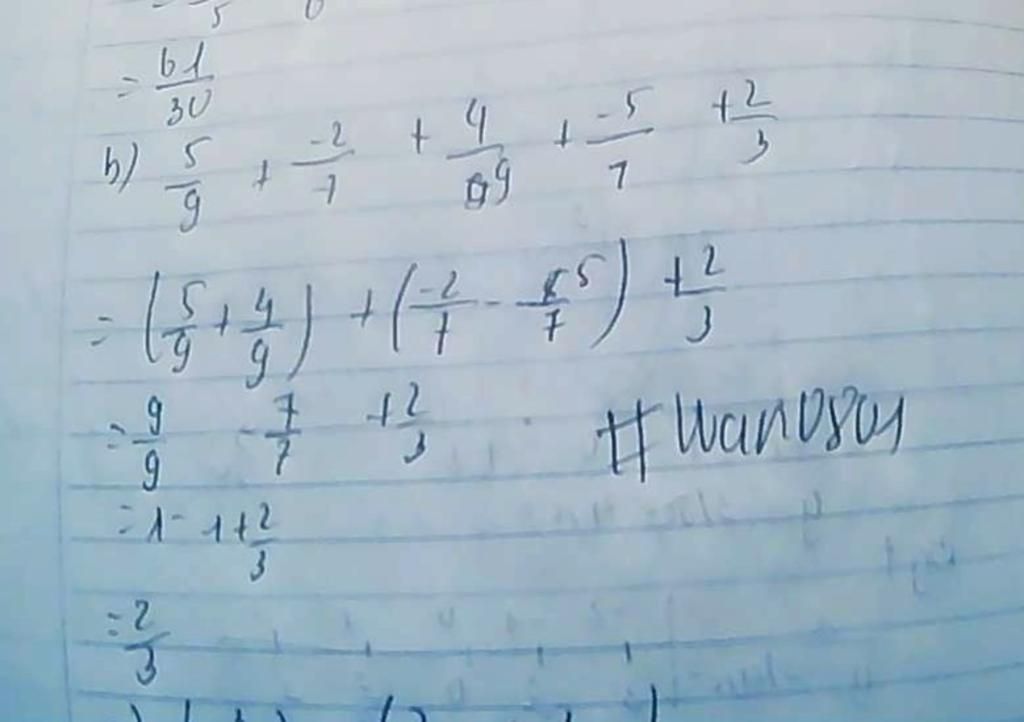 = 61/30
b) 5/9 + -2/7 + 4/9 + -5/7 + 2/3
= (5/9 + 4/9) + (-2/7 - 5/7) + 2/3
= 9/9 - 7/7 + 2/3
#wan0801
= 1 - 1 + 2/3
= 2/3